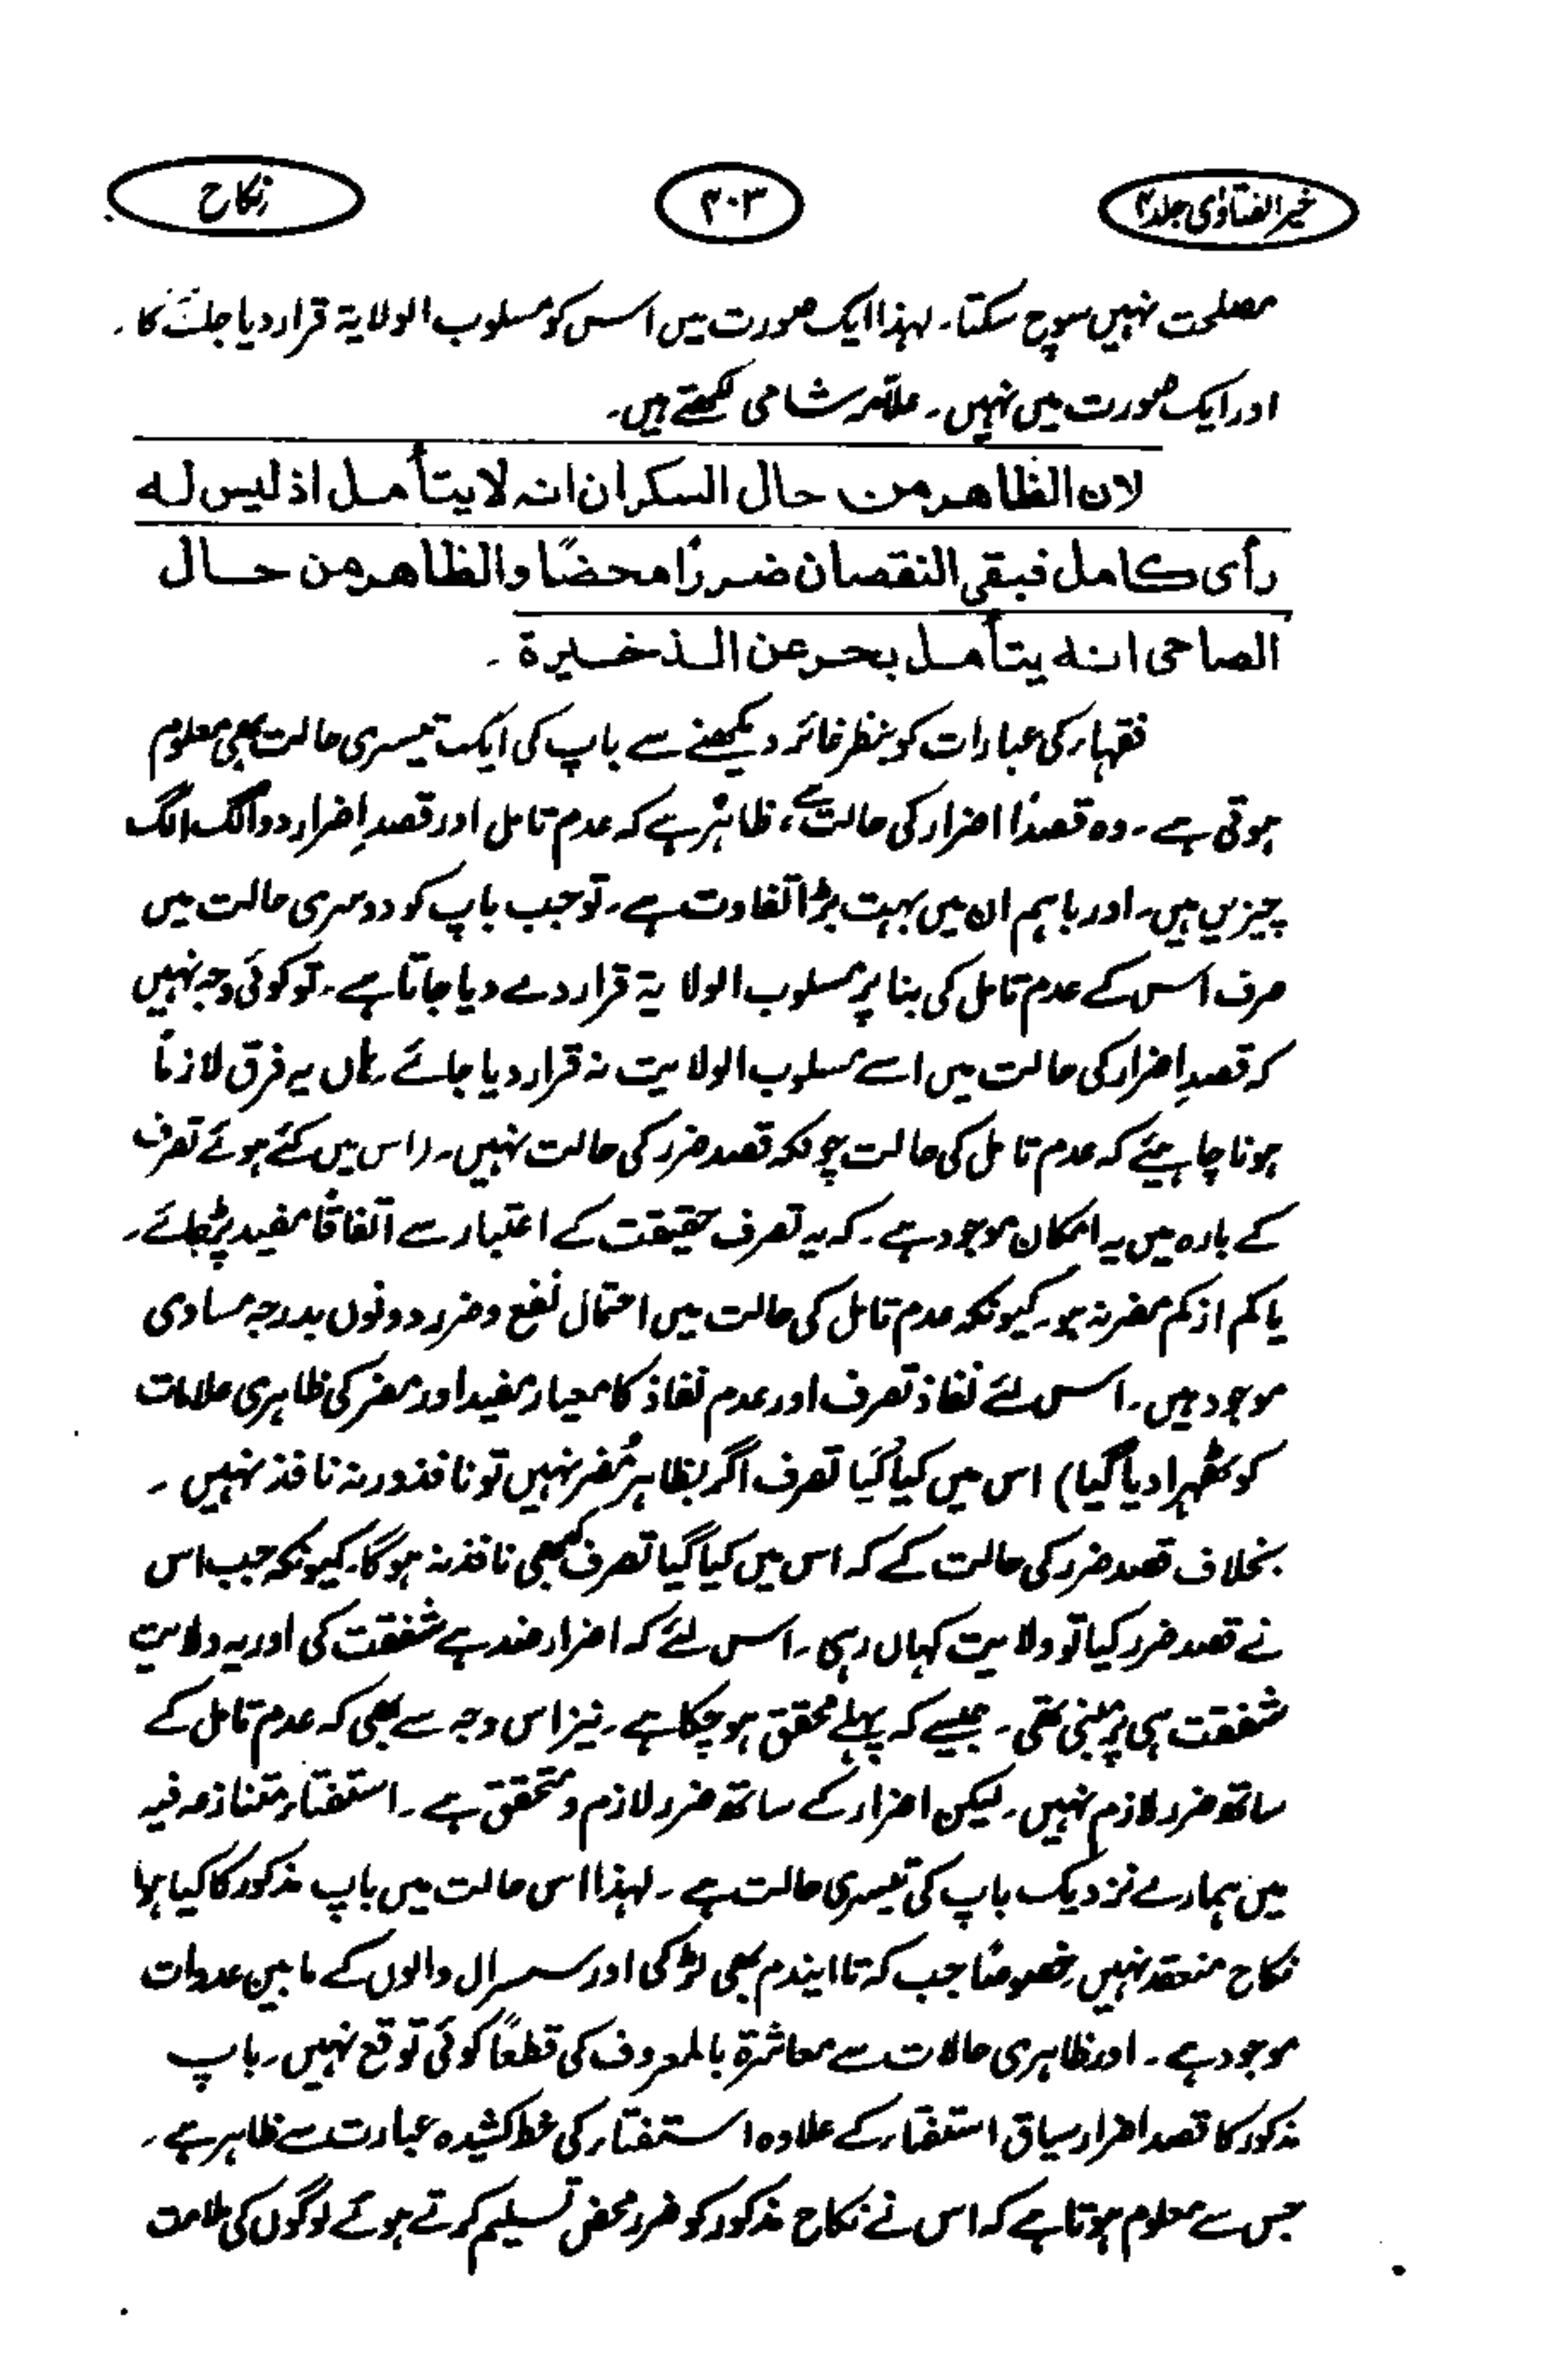 خیر الفتاوٰی جلد ۴
۲۰۳
نکاح
مصلحت نہیں سوچ سکتا۔ لہذا ایک صورت میں اس کو مسلوب الولایۃ قرار دیا جائے گا۔
اور ایک صورت میں نہیں۔ علامہ شامی لکھتے ہیں۔
لان الظاهر من حال السكران انه لا يتأمل اذ ليس له
رأى كامل فبقى النقصان ضررًا محضًا والظاهر من حال
الصاحى انه يتأمل بحر عن الذخيرة۔
فقہاء کی عبارات کو بنظر غائر دیکھنے سے باپ کی ایک تیسری حالت بھی معلوم
ہوتی ہے۔ وہ قصدًا اضرار کی حالت ہے، ظاہر ہے کہ عدم تامل اور قصدِ اضرار دو الگ الگ
چیزیں ہیں۔ اور باہم ان میں بہت بڑا تفاوت ہے۔ تو جب باپ کو دوسری حالت میں
صرف اس کے عدم تامل کی بنا پر مسلوب الولایۃ قرار دے دیا جاتا ہے۔ تو کوئی وجہ نہیں
کہ قصدِ اضرار کی حالت میں اسے مسلوب الولایت نہ قرار دیا جائے۔ ہاں یہ فرق لازمًا
ہونا چاہیئے کہ عدم تامل کی حالت چونکہ قصد ضرر کی حالت نہیں۔ (اس میں کئے ہوئے تصرف
کے بارہ میں یہ امکان موجود ہے۔ کہ یہ تصرف حقیقت کے اعتبار سے اتفاقًا مفید پڑ جائے۔
یا کم از کم مضر نہ ہو۔ کیونکہ عدم تامل کی حالت میں احتمال نفع و ضرر دونوں بدرجہ مساوی
موجود ہیں۔ اس لئے نفاذ تصرف اور عدم نفاذ کا معیار مفید اور مضر کی ظاہری علامات
کو ٹھہرا دیا گیا) اس میں کیا گیا تصرف اگر بظاہر مُضر نہیں تو نافذ ورنہ نافذ نہیں۔
بخلاف قصد ضرر کی حالت کے کہ اس میں کیا گیا تصرف کبھی نافذ نہ ہوگا۔ کیونکہ جب اس
نے قصد ضرر کیا تو ولایت کہاں رہی۔ اس لئے کہ اضرار ضد ہے شفقت کی اور یہ ولایت
شفقت ہی پر مبنی تھی۔ جیسے کہ پہلے محقق ہو چکا ہے۔ نیز اس وجہ سے بھی کہ عدم تامل کے
ساتھ ضرر لازم نہیں۔ لیکن اضرار کے ساتھ ضرر لازم و متحقق ہے۔ استفتاء متنازعہ فیہ
میں ہمارے نزدیک باپ کی تیسری حالت ہے۔ لہذا اس حالت میں باپ مذکور کا کیا ہوا
نکاح منعقد نہیں خصوصًا جب کہ تا ایندم بھی لڑکی اور سسرال والوں کے مابین عداوت
موجود ہے۔ اور ظاہری حالات سے معاشرۃ بالمعروف کی قطعًا کوئی توقع نہیں۔ باپ
مذکور کا قصد اضرار سیاق استفتاء کے علاوہ استفتاء کی خط کشیدہ عبارت سے ظاہر ہے۔
جس سے معلوم ہوتا ہے کہ اس نے نکاح مذکور کو ضرر محض تسلیم کرتے ہوئے لوگوں کی ملامت